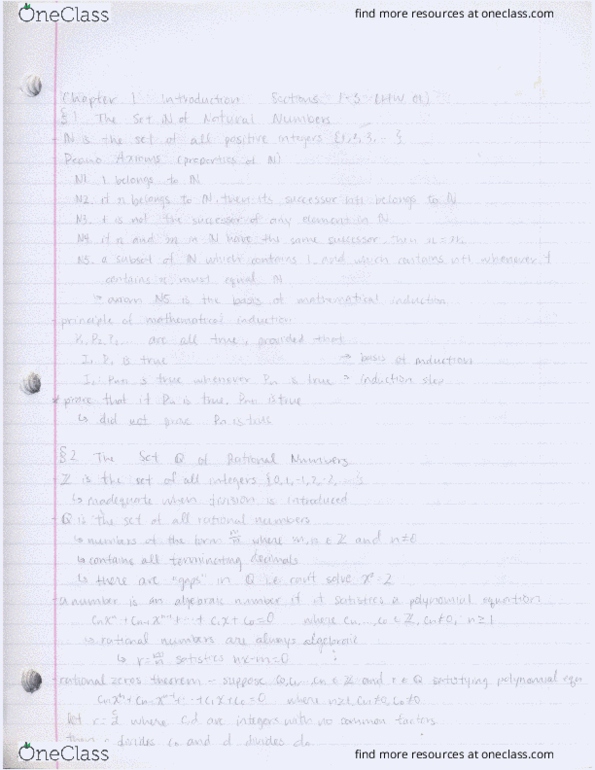 OneClass
find more resources at oneclass.com
Chapter 1 Introduction: Sections 1-3 (HW 01)
§1 The Set ℕ of Natural Numbers
- ℕ is the set of all positive integers {1,2,3,...}
- Peano Axioms (properties of ℕ)
N1. 1 belongs to ℕ
N2. if n belongs to ℕ, then its successor n+1 belongs to ℕ
N3. 1 is not the successor of any element in ℕ
N4. if n and m in ℕ have the same successor, then n = m
N5. a subset of ℕ which contains 1, and which contains n+1 whenever it
contains n must equal ℕ
↳ axiom N5 is the basis of mathematical induction
- principle of mathematical induction
P₁, P₂, P₃... are all true, provided that
I₁ P₁ is true → basis of induction
I₂ Pn+1 is true whenever Pn is true → induction step
* prove that if Pn is true, Pn+1 is true
↳ did not prove Pn is
§2 The Set ℚ of Rational Numbers
- ℤ is the set of all integers {0,1,-1,2,-2,...}
↳ inadequate when division is introduced
- ℚ is the set of all rational numbers
↳ numbers of the form m/n where m,n ∈ ℤ and n≠0
↳ contains all terminating decimals
↳ there are "gaps" in ℚ i.e. can't solve x²=2
- a number is an algebraic number if it satisfies a polynomial equation:
cnxⁿ + cn-1xⁿ⁻¹ + ... + c₁x + c₀ = 0 where c₀,...,cn ∈ ℤ, cn≠0, n≥1
↳ rational numbers are always algebraic
↳ r = m/n satisfies nx-m=0
- rational zeros theorem - suppose c₀,c₁,...cn ∈ ℤ and r ∈ ℚ satisfying polynomial equ
cnxⁿ + cn-1xⁿ⁻¹ + ... + c₁x + c₀ = 0 where n≥1, cn≠0, c₀≠0
let r = c/d where c,d are integers with no common factors
then c divides c₀ and d divides
OneClass
find more resources at oneclass.com